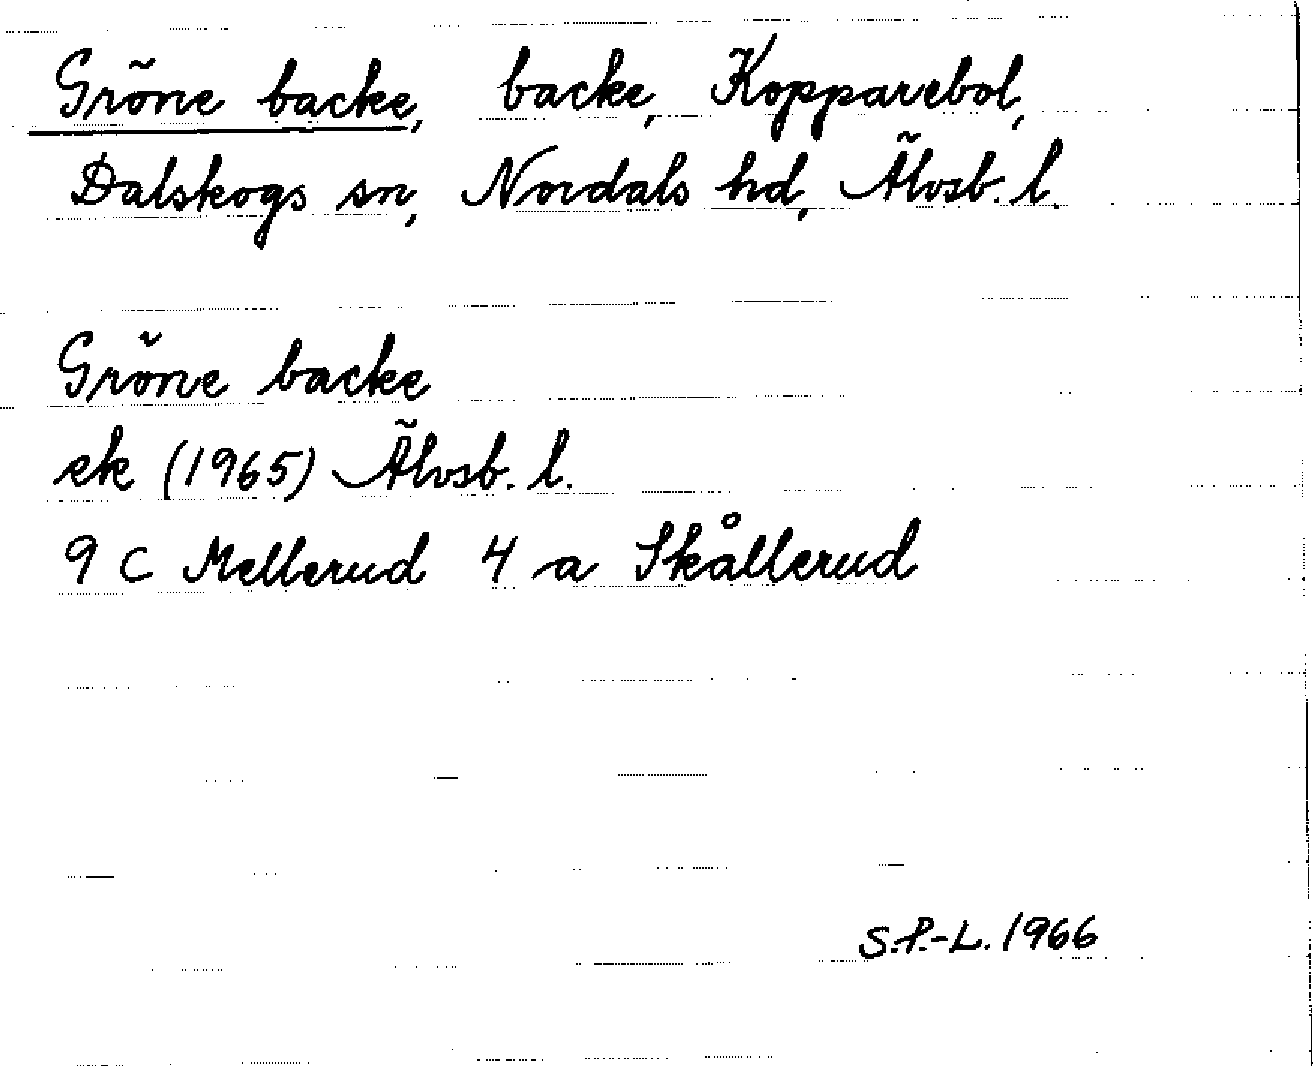 Gröne backe, backe, Kopparebol,
Dalskogs sn, Nordals hd, Älvsb. l.
Gröne backe
ek (1965) Älvsb. l.
9 C Mellerud 4 a Skållerud
S.P.-L. 1966